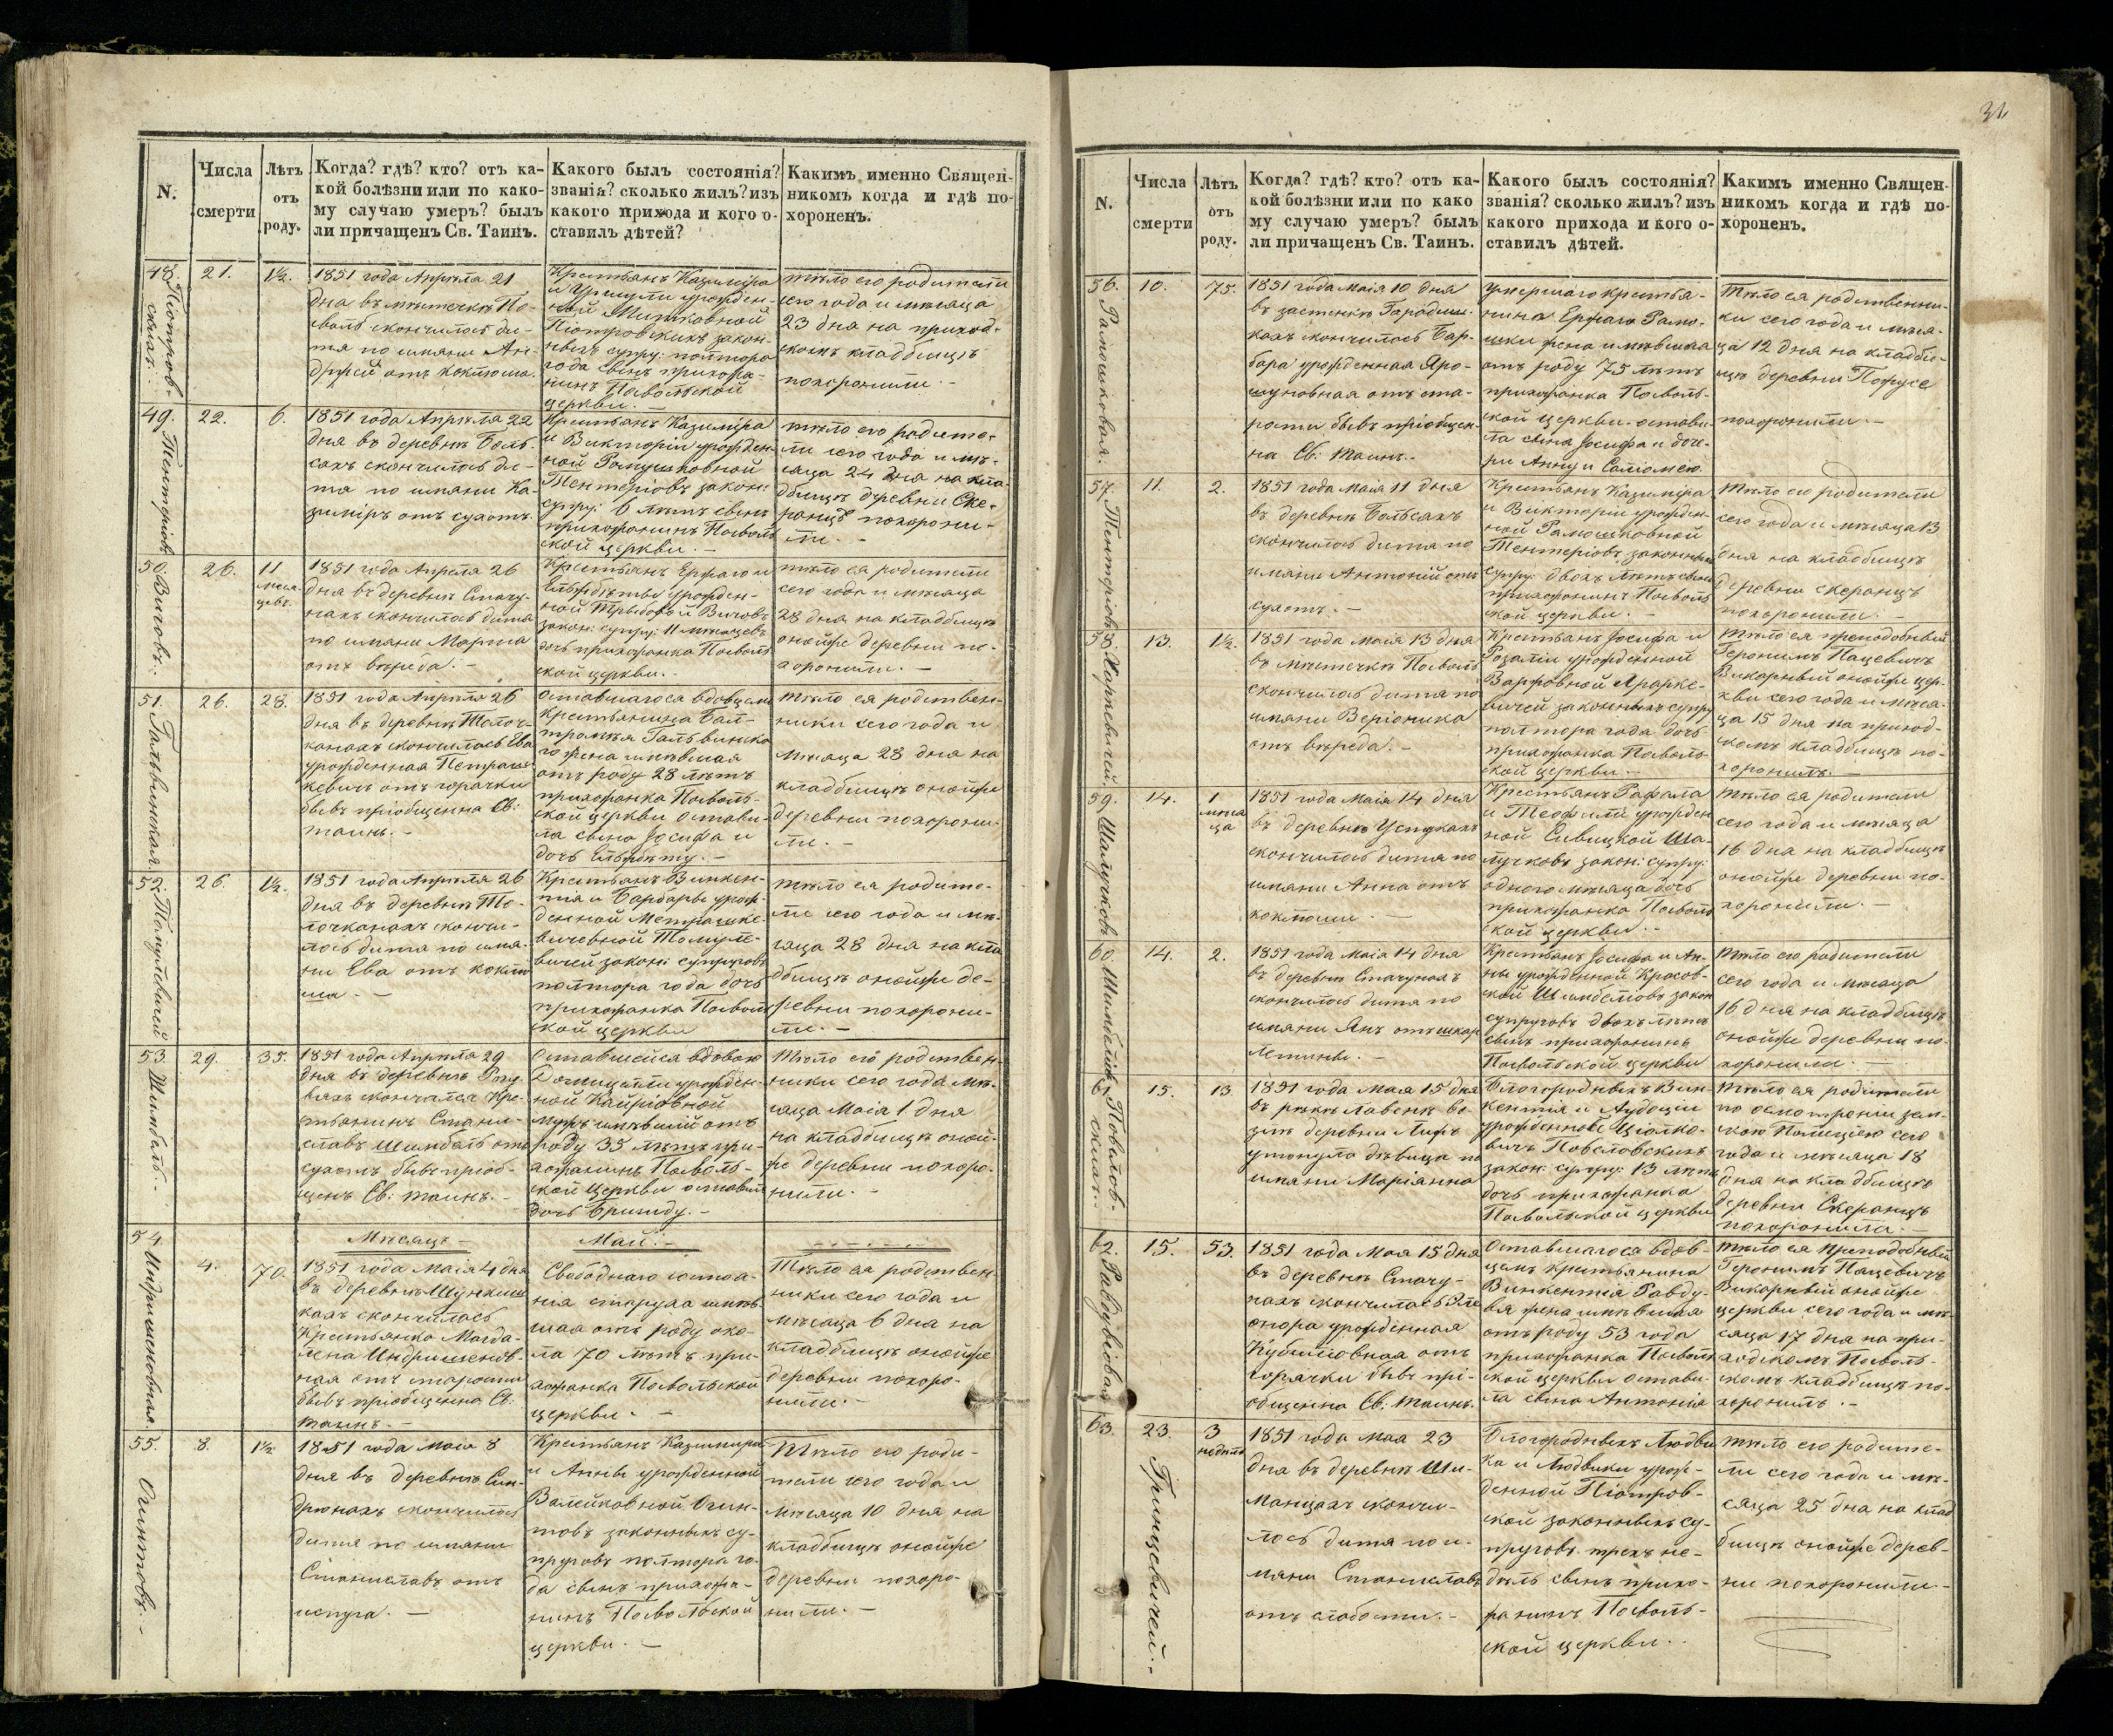 N.
Числа
смерти
Лѣтъ
отъ
роду.
Когда? гдѣ? кто? отъ ка-
кой болѣзни или по како-
му случаю умеръ? былъ
ли причащенъ Св. Таинъ.
Какого былъ состоянія?
званія? сколько жилъ? изъ
какого прихода и кого о-
ставилъ дѣтей?
Какимъ именно Священ-
никомъ когда и гдѣ по-
хороненъ.
48.
Піотров-
скихъ.
21.
1½.
1851 года Апрѣля 21
дня въ мѣстечкѣ По-
скончилось ди-
тя по имяни Ан-
дрей отъ коклюша.
Крестьянъ Казиміра
и Уршули урожден-
ной Митковной
Піотровскихъ закон-
ныхъ супру: полтора
года сынъ прихожа-
нинъ Посвольской
церкви. -
тѣло его родители
сего года и мѣсяца
23 дня на приход-
скомъ кладбищѣ
похоронили. -
49.
Тентеріовъ
22.
6.
1851 года Апрѣля 22
дня въ деревнѣ Боль-
сахъ скончилось ди-
тя по имяни Ка-
зиміръ отъ сухотъ.
Крестьянъ Казиміра
и Викторіи урожден-
ной Ромушковной
Тентеріовъ закон:
супру: 6 лѣтъ сынъ
прихожанинъ Посволь
ской церкви. -
тѣло его родите-
ли сего года и мѣ-
сяца 24 дня на кла
дбищѣ деревни Ске-
ранцъ похорони-
ли. -
50.
Вичовъ.
26.
11
меся
цевъ.
1851 года Апреля 26
дня въ деревнѣ Стачу-
нахъ скончилось дитя
по имяни Марта
отъ вереда. -
Крестьянъ Ержаго и
Ельжбѣты урожден-
ной Вичовъ
закон: супру: 11 мѣсяцевъ
дочь прихожанка Посволь
ской церкви. -
тѣло ея родители
сего года и мѣсяца
28 дня на кладбищѣ
онойже деревни по-
хоронили. -
51.
Гальвинская.
26.
28.
1851 года Апрѣля 26
дня въ деревнѣ Толоч-
канахъ скончилось Ева
урожденная Петраш-
кевичъ отъ горачки
бывъ пріобщенна Св:
таинъ. -
Оставшагося вдовцемъ
Крестьянина Бал-
тромѣя Гальвинско
го жена имѣвшая
отъ роду 28 лѣтъ
прихожанка Посволь-
ской церкви остави-
ла сына Іосифа и
дочь Ельжбѣту. -
тѣло ея родствен-
ники сего года и
мѣсяца 28 дня на
кладбищѣ онойже
деревни похорони-
ли. -
52.
Томулевичей
26.
1½.
1851 года Апрѣля 26
дня въ деревнѣ То-
лочканахъ скончи-
лось дитя по имя-
ни Ева отъ коклю
ша. -
Крестьянъ Викен-
тія и Барбары урож-
денной Метрашке-
вичевной Томуле-
вичей закон: супруговъ
полтора года дочь
прихожанка Посволь
ской церкви
тѣло ея родите-
ли сего года и мѣ-
сяца 28 дня на кла
дбищѣ онойже де-
ревни похорони-
ли. -
53.
Шимбель. -
29.
35.
1851 года Апрѣля 29
дня въ деревнѣ
скончился Кре-
стьянинъ Стани-
славъ Шимбель отъ
сухотъ бывъ пріоб-
щенъ Св: таинъ. -
Оставшейся вдовою
Домицели урожден-
ной Кайріовной
мужъ имѣвшій отъ
роду 35 лѣтъ при-
хожанинъ Посволь-
ской Церкви оставилъ
дочь Бригиду. -
тѣло его родствен-
ники сего года мѣ-
сяца Маія 1 дня
на кладбищѣ оной-
же деревни похоро-
нили. -
54.
Индришеновная.
Мѣсяцъ -
Май. -
4.
70.
1851 года Маія 4 дня
въ деревнѣ
кахъ скончилось
Крестьянка Магда-
лена Индришенов-
ная отъ старости
бывъ пріобщенна Св.
таинъ. -
Свободнаго состоя-
нія старуха имѣв-
шая отъ роду око-
ла 70 лѣтъ при-
хожанка Посвольской
церкви. -
Тѣло ея родствен-
ники сего года и
мѣсяца 6 дня на
кладбищѣ онойже
деревни похоро-
нили. -
55.
Огинтовъ. -
8.
1½
1851 года Маія 8
дня въ деревнѣ Син-
дрюнахъ скончилось
дитя по имяни
Станиславъ отъ
испуга. -
Крестьянъ Казиміра
и Анны урожденной
Валейковной Огин-
товъ законныхъ су-
пруговъ полтора го-
да сынъ прихожа-
нинъ Посвольской
церкви. -
Тѣло его роди-
тели сего года и
мѣсяца 10 дня на
кладбищѣ онойже
деревни похоро-
нили. -
31
N.
Числа
смерти
Лѣтъ
отъ
роду.
Когда? гдѣ? кто? отъ ка-
кой болѣзни или по како
му случаю умеръ? былъ
ли причащенъ Св. Таинъ.
Какого былъ состоянія?
званія? сколько жилъ? изъ
какого прихода и кого о-
ставилъ дѣтей.
Какимъ именно Священ-
никомъ когда и гдѣ по-
хороненъ.
56.
Рамошковая.
10.
75.
1851 года Маія 10 дня
въ застенкѣ Городиш-
кахъ скончилось Бар-
бара урожденная Яро-
шуновная отъ ста-
рости бывъ пріобщен-
на Св: Таинъ. -
Умершаго крестья-
нина Ержаго Рамо-
шки жена имѣвшая
отъ роду 75 лѣтъ
прихожанка Посволь-
ской церкви остави-
ла сына Іосифа и доче-
ри Анну и Саломею
Тѣло ея родственни-
ки сего года и мѣся-
ца 12 дня на кладби-
щѣ деревни Подусе
похоронили. -
57.
Тентеріовъ
11.
2.
1851 года Маія 11 дня
въ деревнѣ Больсахъ
скончилось дитя по
имяни Антоній отъ
сухотъ. -
Крестьянъ Казиміра
и Викторіи урожден-
ной Рамошковной
Тентеріовъ законныхъ
супру: двохъ лѣтъ сынъ
прихожанинъ Посволь
ской церкви. -
тѣло его родители
сего года и мѣсяца 13
дня на кладбищѣ
деревни Скеранцъ
похоронили. -
58.
13.
1½.
1851 года Маія 13 дня
въ мѣстечкѣ Посволь
скончилось дитя по
имяни Вероника
отъ вереда. -
Крестьянъ Іосифа и
Розаліи урожденной
законныхъ супру
полтора года дочь
прихожанка Посволь-
ской церкви -
тѣло ея преподобный
Геронимъ Пацевичъ
Викарный онойже цер-
кви сего года и мѣся-
ца 15 дня на приход-
скомъ кладбищѣ по-
хоронилъ. -
59.
Шалучковъ
14.
1
мѣся
ца
1851 года Маія 14 дня
въ деревнѣ
скончилось дитя по
имяни Анна отъ
коклюши. -
Крестьянъ Рафала
и Теофили урожден
ной Сивицкой Ша-
лучковъ закон: супру:
одного мѣсяца дочь
прихожанка Посволь
ской церкви. -
тѣло ея родители
сего года и мѣсяца
16 дня на кладбищѣ
онойже деревни по-
хоронили. -
60.
Шимбелювъ
14.
2.
1851 года Маія 14 дня
въ деревнѣ Стачунахъ
скончилось дитя по
имяни Янъ отъ шкар
летины. -
Крестьянъ Іосифа и Ан-
ны урожденной Красов-
ской Шимбелювъ закон
супруговъ двохъ лѣтъ
сынъ прихожанинъ
Посвольской церкви
тѣло его родители
сего года и мѣсяца
16 дня на кладбищѣ
онойже деревни по-
хоронили. -
61.
Повилов-
скихъ.
15.
13.
1851 года Мая 15 дня
въ рѣкѣ Лавенѣ во-
злѣ деревни
утонула дѣвица по
имяни Маріанна
Благородныхъ Вин-
кентія и Аудоціи
урожденное Ціолко-
вичъ Повиловскихъ
закон: супру: 13 лѣтъ
дочь прихожанка
Посвольской церкви
тѣло ея родители
по осмотреніи зем-
скою Полиціею сего
года и мѣсяца 18
дня на кладбищѣ
деревни Скеранцъ
похоронила. -
62.
Равдувіовая
15.
53.
1851 года Мая 15 дня
въ деревнѣ Стачу-
нахъ скончилась Эле
онора урожденная
Кубиліовная отъ
горячки бывъ прі-
общенна Св: таинъ.
Оставшагося вдов-
цемъ крестьянина
Винкентія Равду-
вя жена имѣвшая
отъ роду 53 года
прихожанка Посволь
ской церкви остави-
ла сына Антонія
тѣло ея Преподобный
Геронимъ Пацевичъ
Викарный онойже
церкви сего года и мѣ-
сяца 17 дня на при-
ходскомъ Посволь-
скомъ кладбищѣ по-
хоронилъ. -
63.
Гринцевичей. -
23.
3
недели
1851 года Мая 23
дня въ деревнѣ Ши-
манцахъ скончи-
лось дитя по и-
мяни Станиславъ
отъ слабости. -
Благородныхъ Людви
ка и Людвики урож-
денной Піотров-
ской законныхъ су-
пруговъ трехъ не-
дѣль сынъ прихо-
жанинъ Посволь-
ской церкви. -
тѣло его родите-
ли сего года и мѣ-
сяца 25 дня на клад
бищѣ онойже дерев-
ни похоронили. -